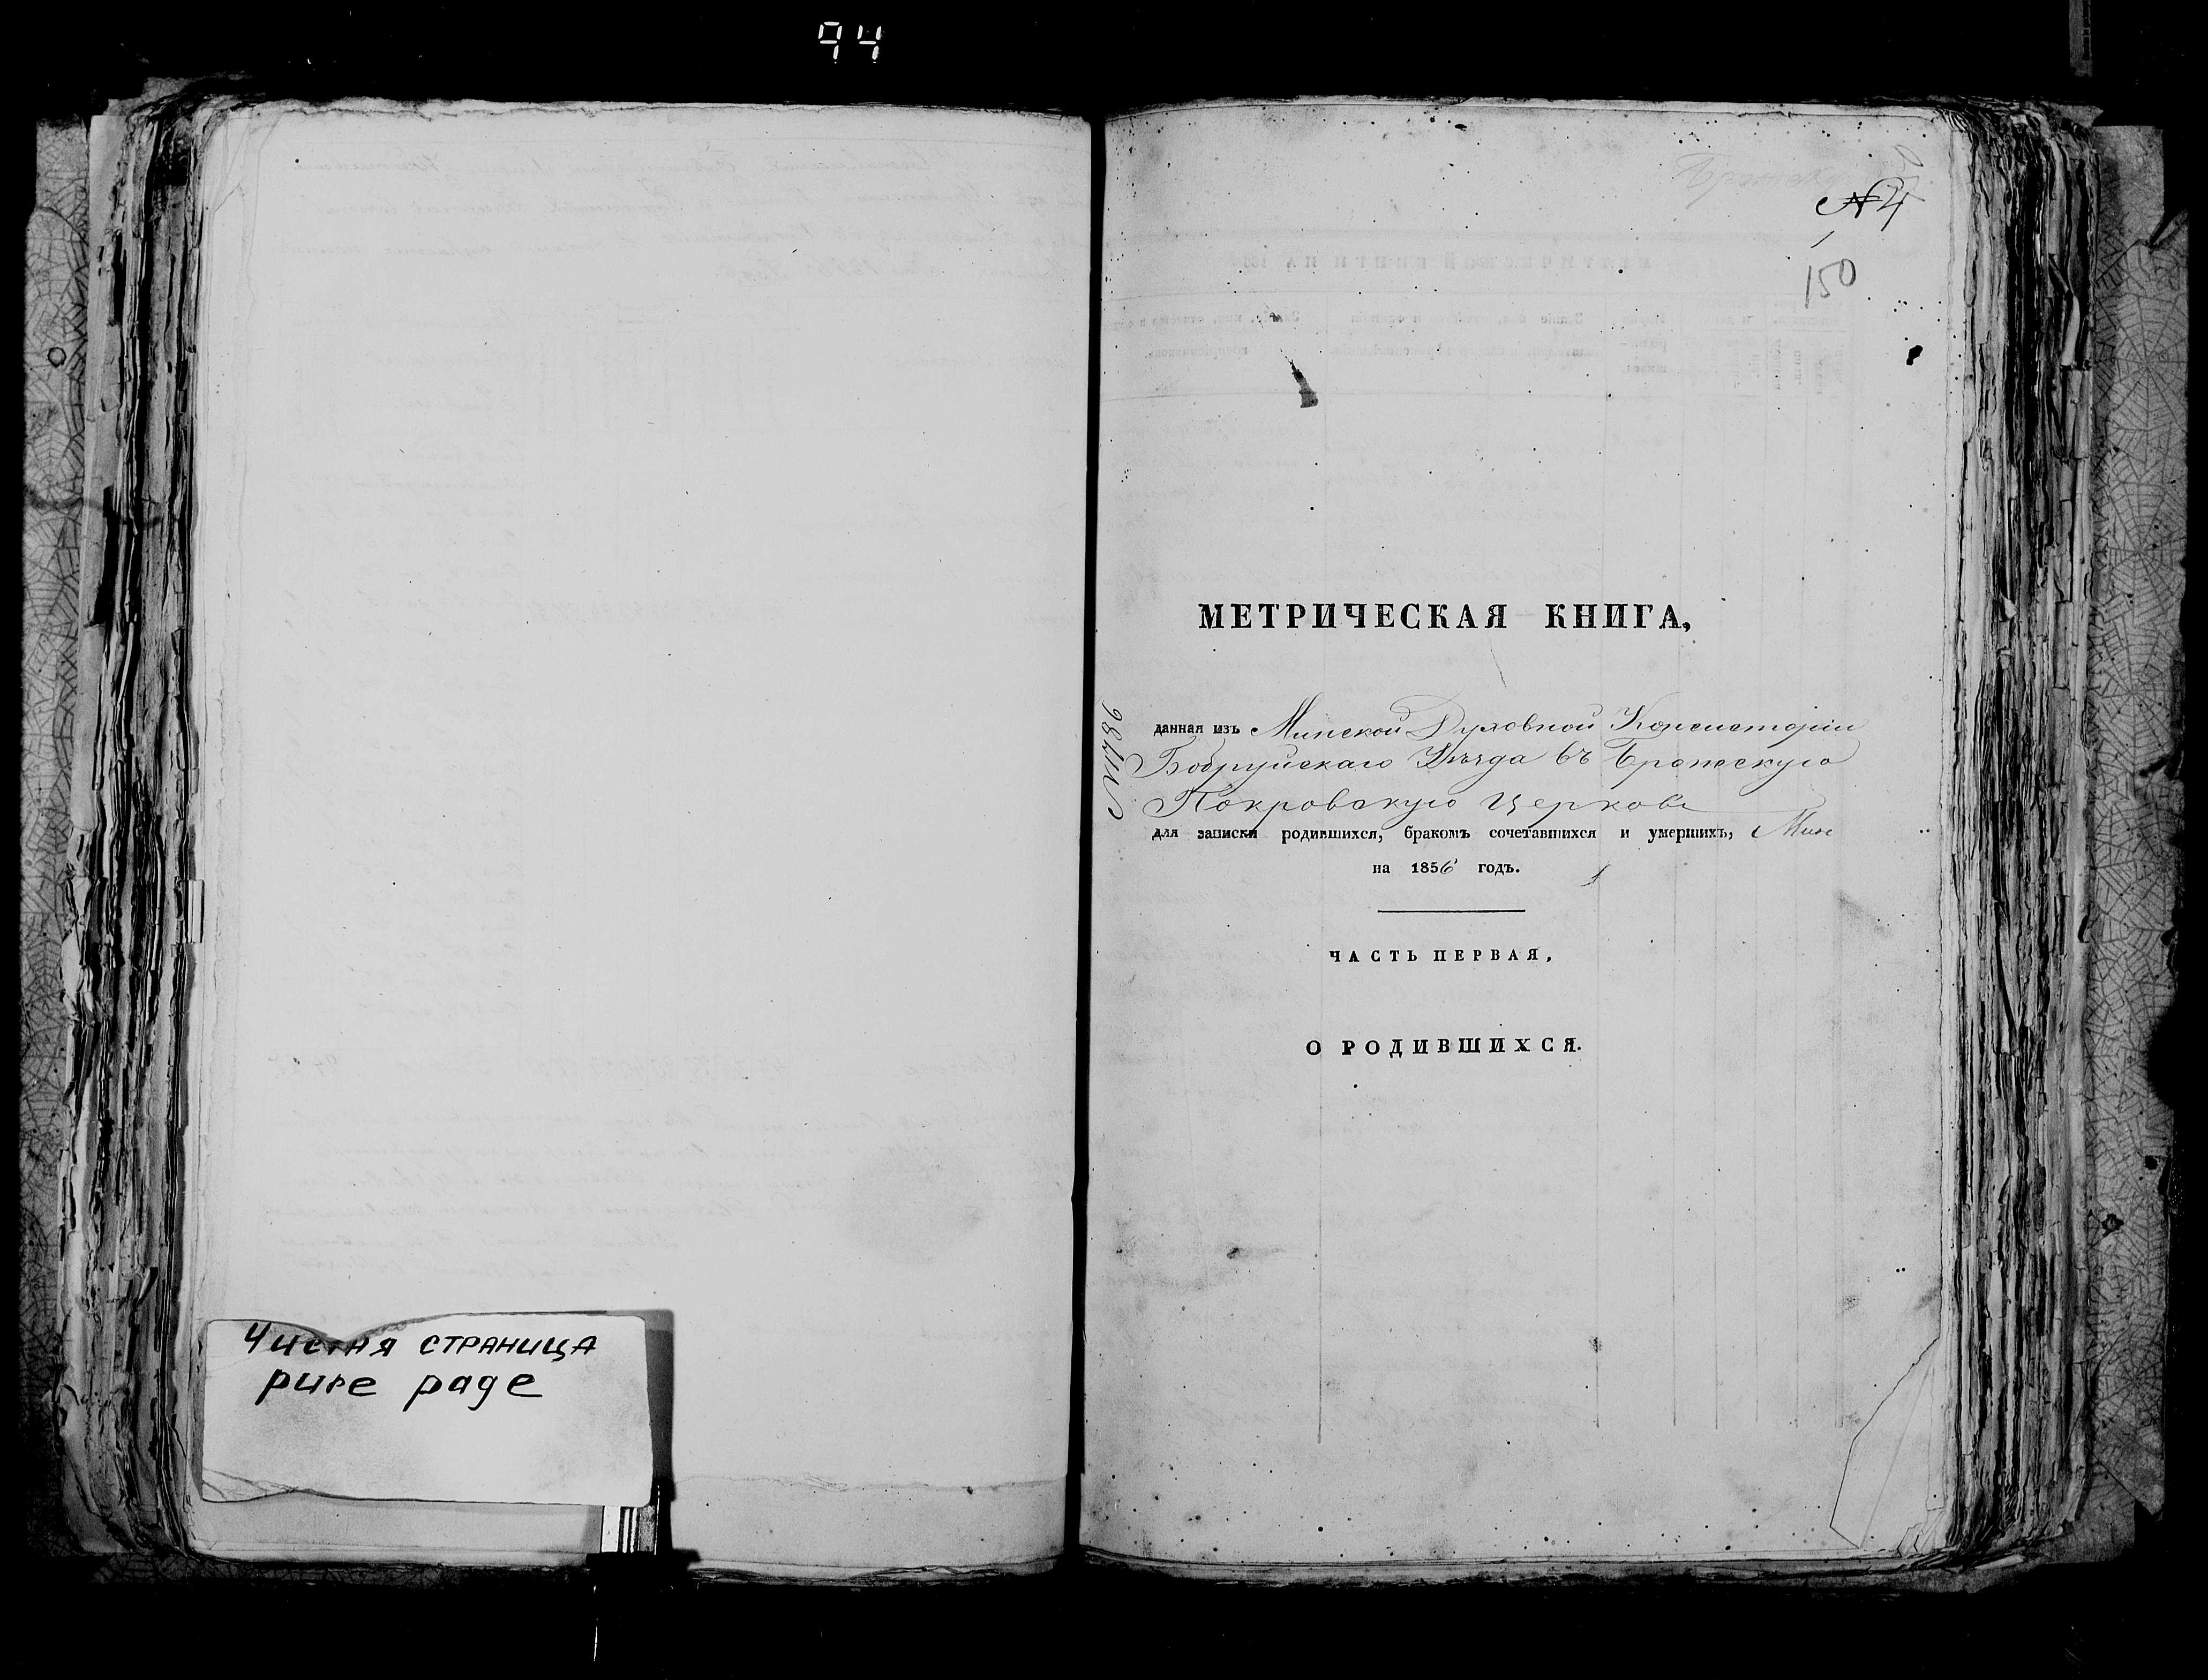 94
Чистая страница
pure page
№ 4
150
МЕТРИЧЕСКАЯ КНИГА,
№ 1786
данная изъ Минской Духовной Консисторіи
Бобруйскаго Уѣзда въ Брожскую
Покровскую церковь
для записки родившихся, бракомъ сочетавшихся и умершихъ,
на 1856 годъ.
ЧАСТЬ ПЕРВАЯ,
О РОДИВШИХСЯ.